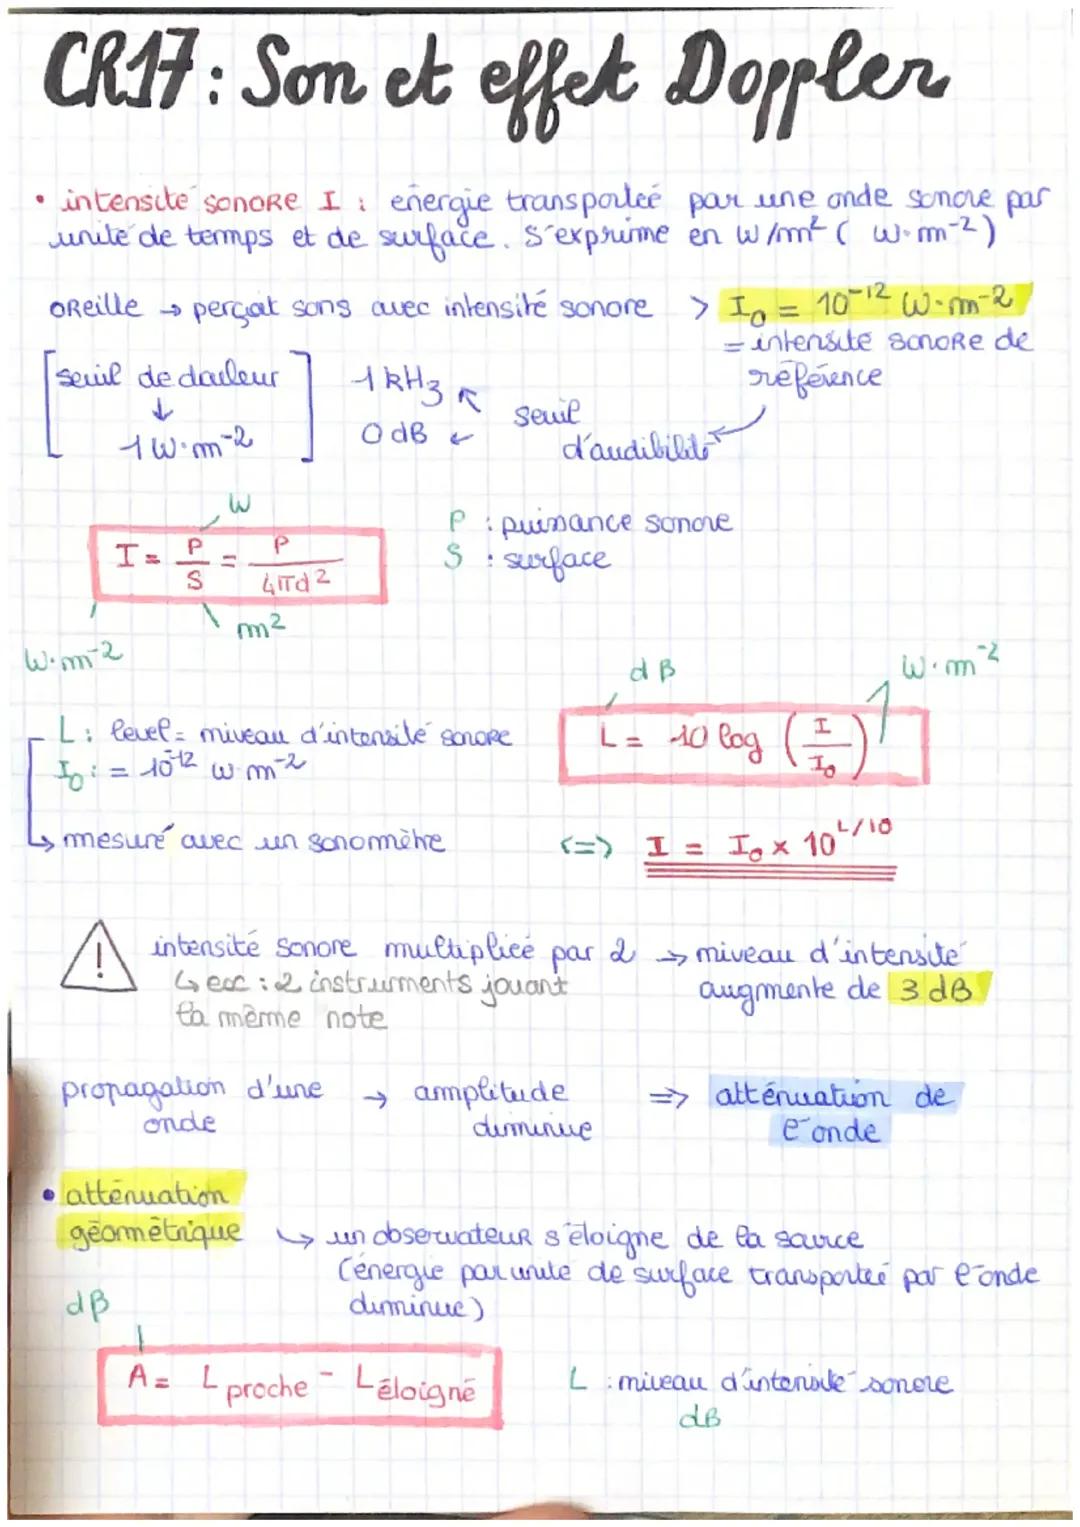 CR17 : Son et effet Doppler
• intensité sonore I : énergie transportée par une onde sonore par
unité de temps et de surface. S'exprime en W/m² ( W·m⁻²)
oreille → perçoit sons avec intensité sonore > I₀ = 10⁻¹² W·m⁻²
= intensité sonore de
référence
[seuil de douleur
↓
1 W·m⁻²]
1 kHz
0 dB
seuil
d'audibilité
W
I = P/S = P/4πd²
m²
W·m⁻²
P : puissance sonore
S : surface
dB
W·m⁻²
L = 10 log (I/I₀)
L : level = niveau d'intensité sonore
I₀ : = 10⁻¹² W m⁻²
↳ mesuré avec un sonomètre
<=> I = I₀ × 10^L/10
! intensité sonore multipliée par 2 → niveau d'intensité
augmente de 3 dB
↳ ex : 2 instruments jouant
la même note
propagation d'une → amplitude => atténuation de
onde diminue l'onde
• atténuation
géométrique ↳ un observateur s'éloigne de la source
(énergie par unité de surface transportée par l'onde
diminue)
dB
A = L proche - L éloigné
L : niveau d'intensité sonore
dB